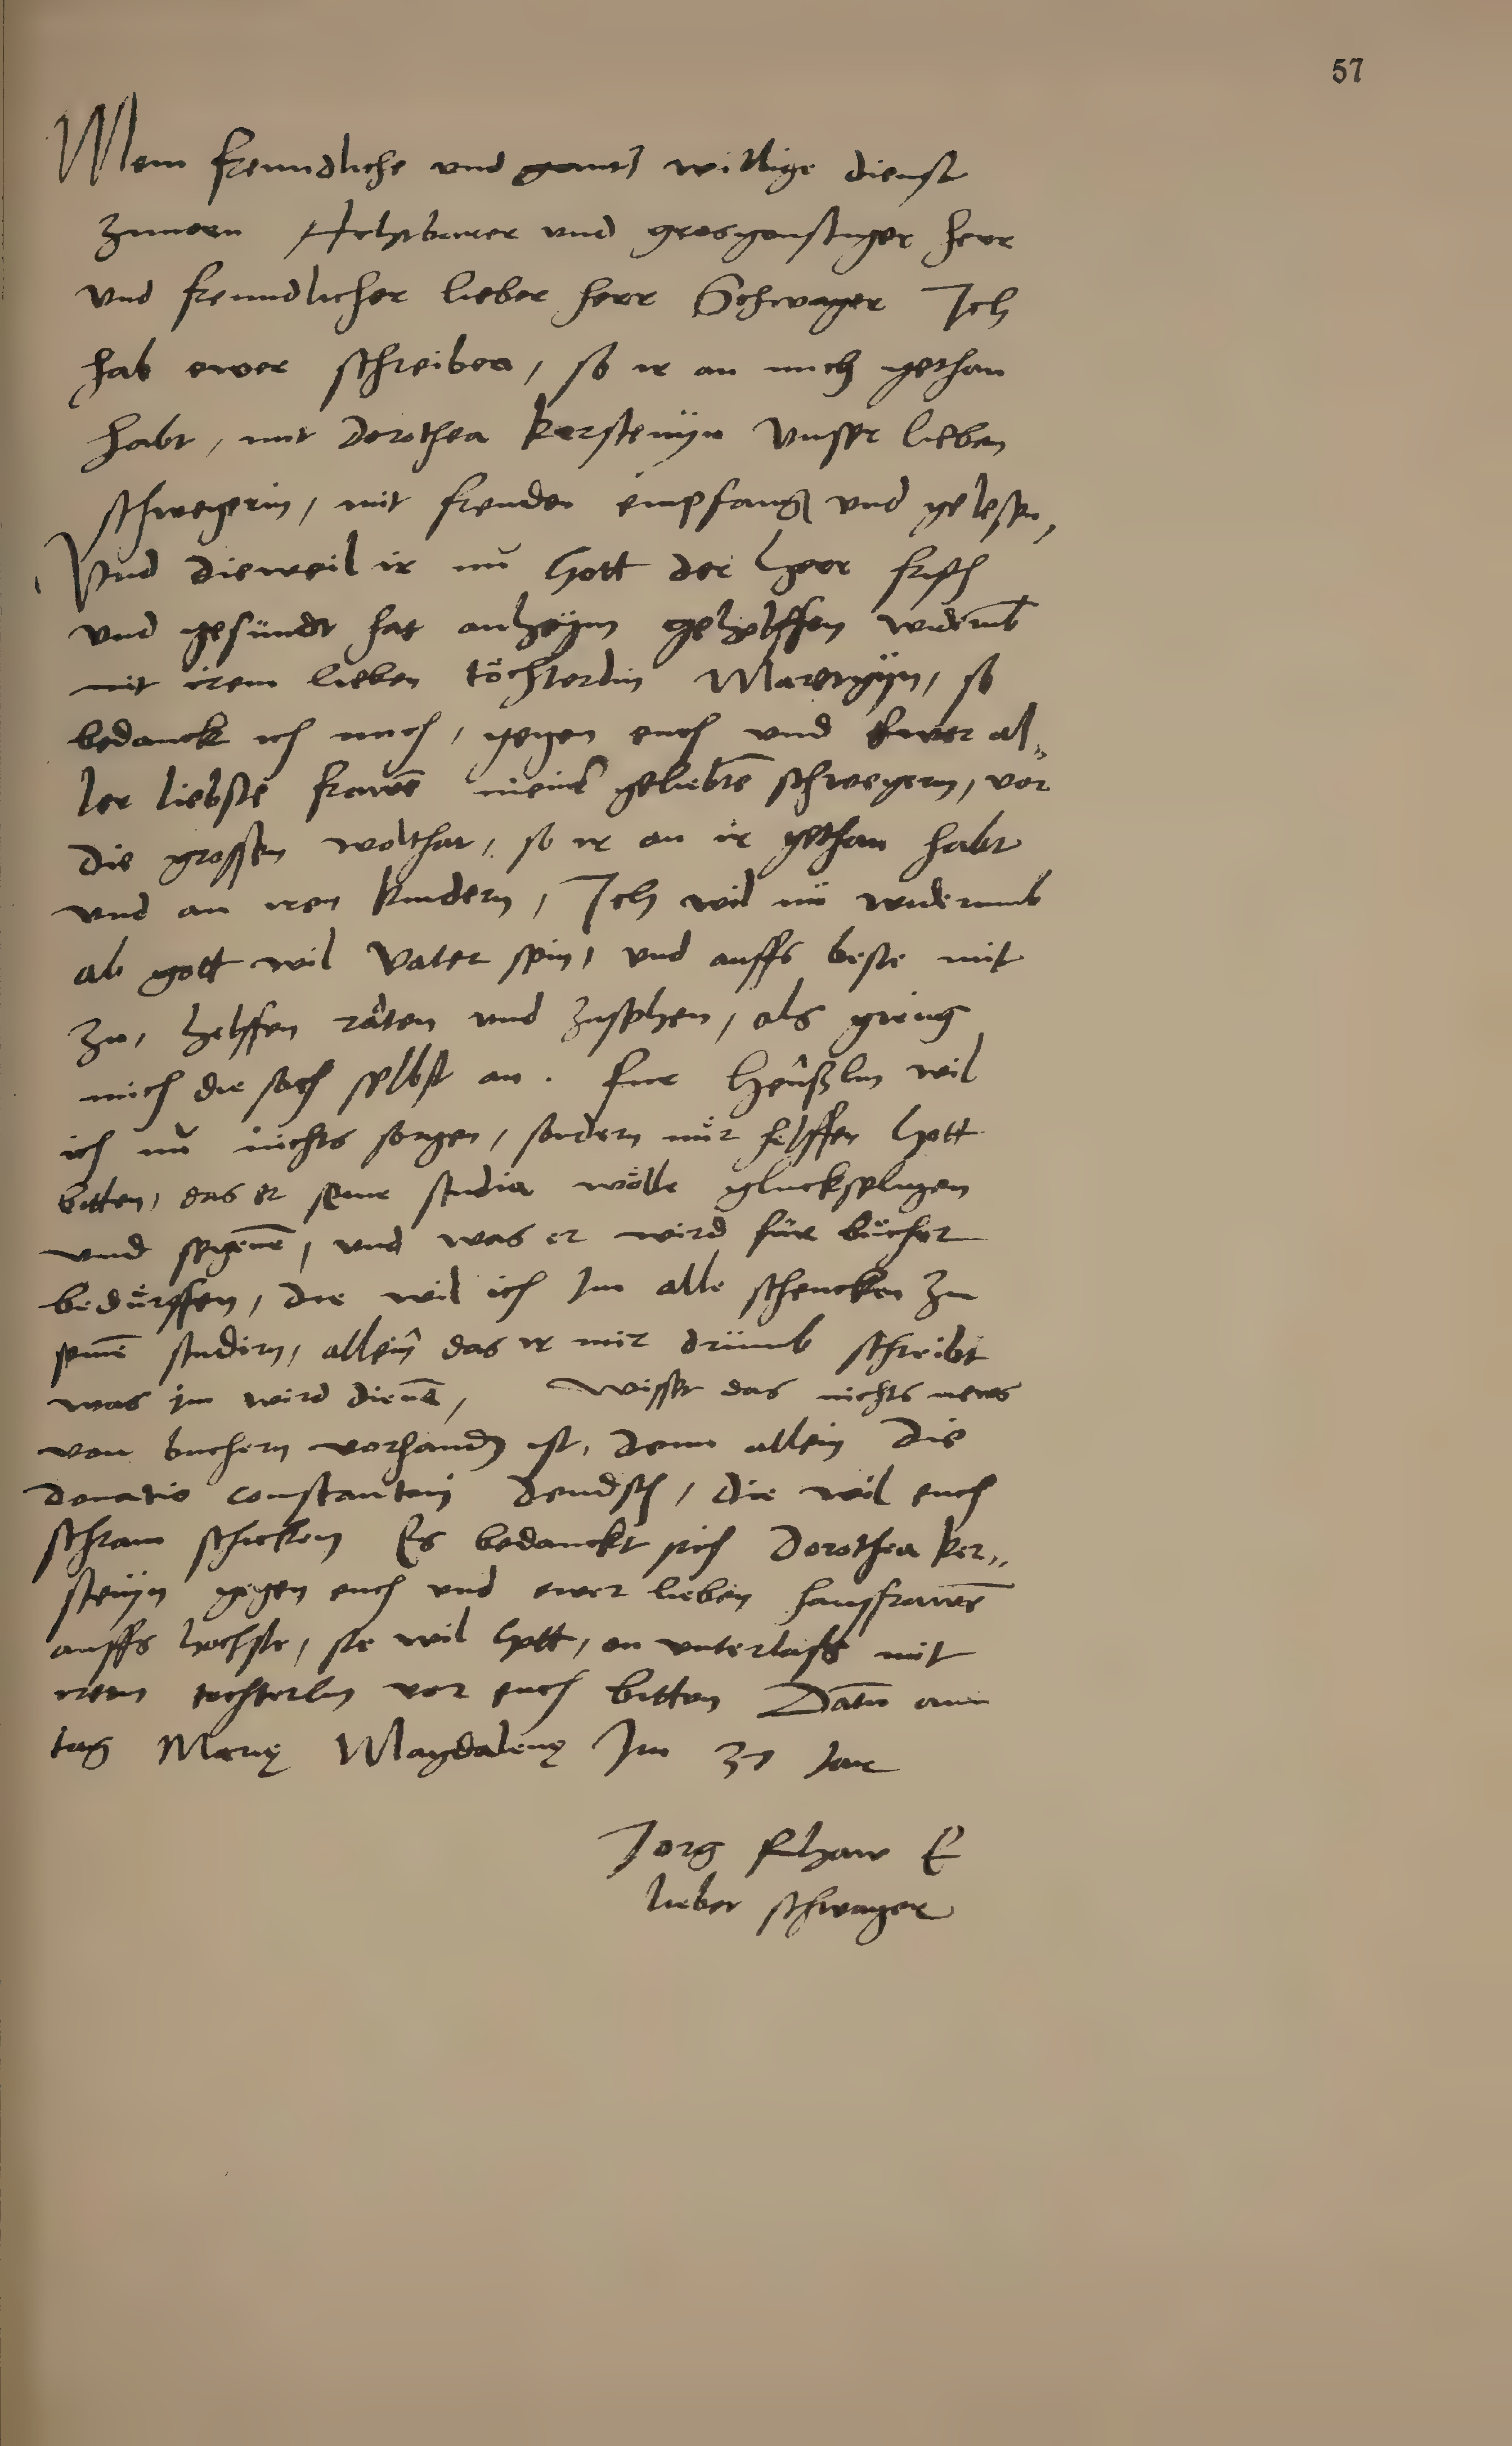 57
Mein freundliche und gantz willige dienst
zuuorn Achtbarer und grosgonstiger herr
Vnd freundlicher lieber herr Schwager Ich
hab ewer schreiben, so ir an mich gethan
habt, mit dorothea kerstenÿn Vnser lieben
schwegerin, mit freuden empfang und gelesen,
Vnd dieweil ir nŭ Gott der herr frisch
vnd gesündt hat anheÿm geholffen widerūb
mit irem lieben töchterlin, so
bedanck ich mich, gegen euch vnd Ewer al„
ler liebste frawē meinē geliebtē schwegern, vor
die grossen wolthat, so ir an ir gethan habt
vnd an iren kindern, Ich wil nü widerumb
ab gott wil Vater sein, vnd auffs beste mit
zu, helffen råten vnd zusehen, als gieng
mich die sach selbst an. fur Henßlin wil
ich nŭ nichts sorgen, sondern nŭr helffen Gott
bitten, das er seine studia wölle gluckseligen
vnd segenē, vnd was er wird für bücher
bedürffen, die wil ich Im alle schencken zu
seinē studirn, allein das ir mir drümb schreibt
was im wird dienē, Wisset das nichts news
von buchern vorhandn ist, denn allein die
donatio constantini deudsch, die wil euch
schram schicken Es bedanckt sich Dorothea ker„
stenÿn gegen euch vnd ewer lieben hausfrawē
auffs hochste, sie wil Gott, on vnterlass mit
irem tochterlin vor euch bitten Datū am
tag Marię Magdalenę Im 37 Iar
Jorg Rhaw E
lieber schwager